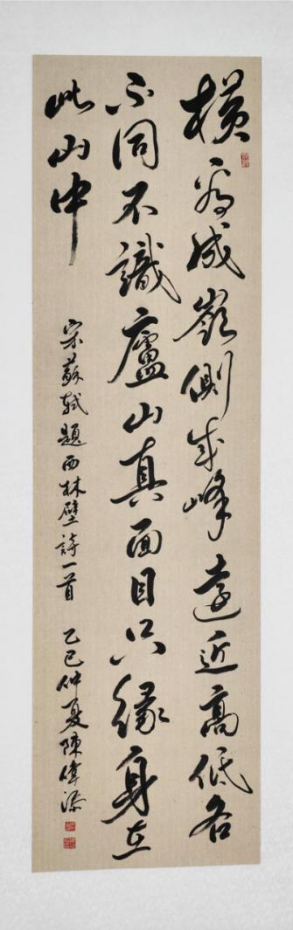 橫看成嶺側成峰遠近高低各
不同不識廬山真面目只緣身在
此山中
宋蘇軾題西林壁詩一首 乙巳仲夏陳偉添